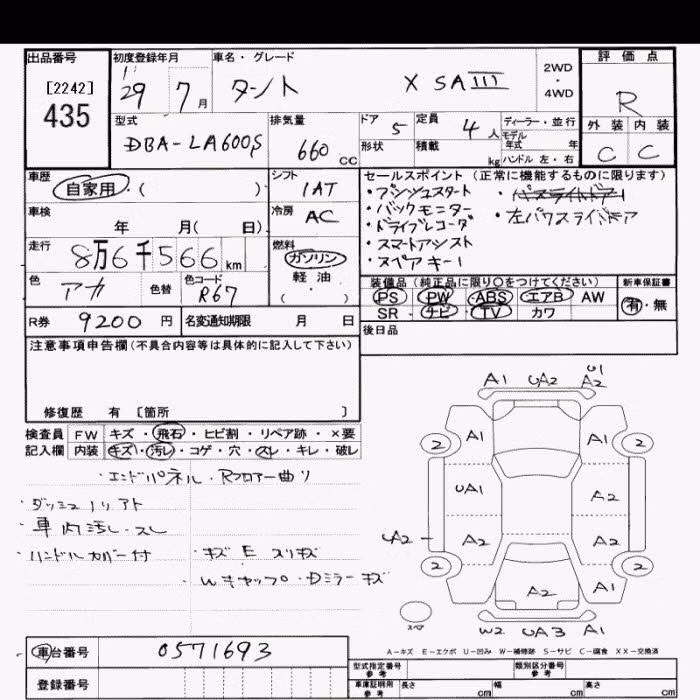 出品番号
[2242]
435
初度登録年月
29 7月
車名・グレード
タント X SAⅢ
2WD
・
4WD
評価点
R
外装 内装
C C
型式
DBA-LA600S
排気量
660 CC
ドア 5
定員 4人
形状
積載 kg
ディーラー・並行
モデル年式 年
ハンドル 左・右
車歴
自家用・( )
シフト
IAT
車検
年 月( 日)
冷房
AC
走行
8万6千566km
燃料
ガソリン
軽油
( )
色
アカ
色替
色コード
R67
R券 9200円
名変通知期限 月 日
セールスポイント (正常に機能するものに限ります)
・プッシュスタート
・バックモニター
・左パワスライドドア
・ドライブレコーダ
・スマートアシスト
・スペアキー1
装備品(純正品に限り○をつけてください)
PS PW ABS エアB AW
SR ナビ TV カワ
新車保証書
有・無
後日品
注意事項申告欄(不具合内容等は具体的に記入して下さい)
修復歴 有 [箇所 ]
検査員記入欄
FW キズ・飛石・ヒビ割・リペア跡・×要
内装 キズ・汚レ・コゲ・穴・スレ・キレ・破レ
・エンドパネル・Rフロアー曲り
・ダッシュノリアト
・車内汚レ・スレ
・ハンドルカバー付
・キズ E スリキズ
・Wキャップ・Dミラーキズ
A1 UA2 U1
A2
2 A1 A1 2
UA1 A2
UA2 A2 A2
2 A2 A1 2
スペア
W2 UA3 A1
A-キズ E-エクボ U-凹み W-補修跡 S-サビ C-腐食 XX-交換済
車台番号
0571693
登録番号
型式指定番号
参考
類別区分番号
参考
車庫証明用
参考
長さ cm
幅 cm
高さ cm